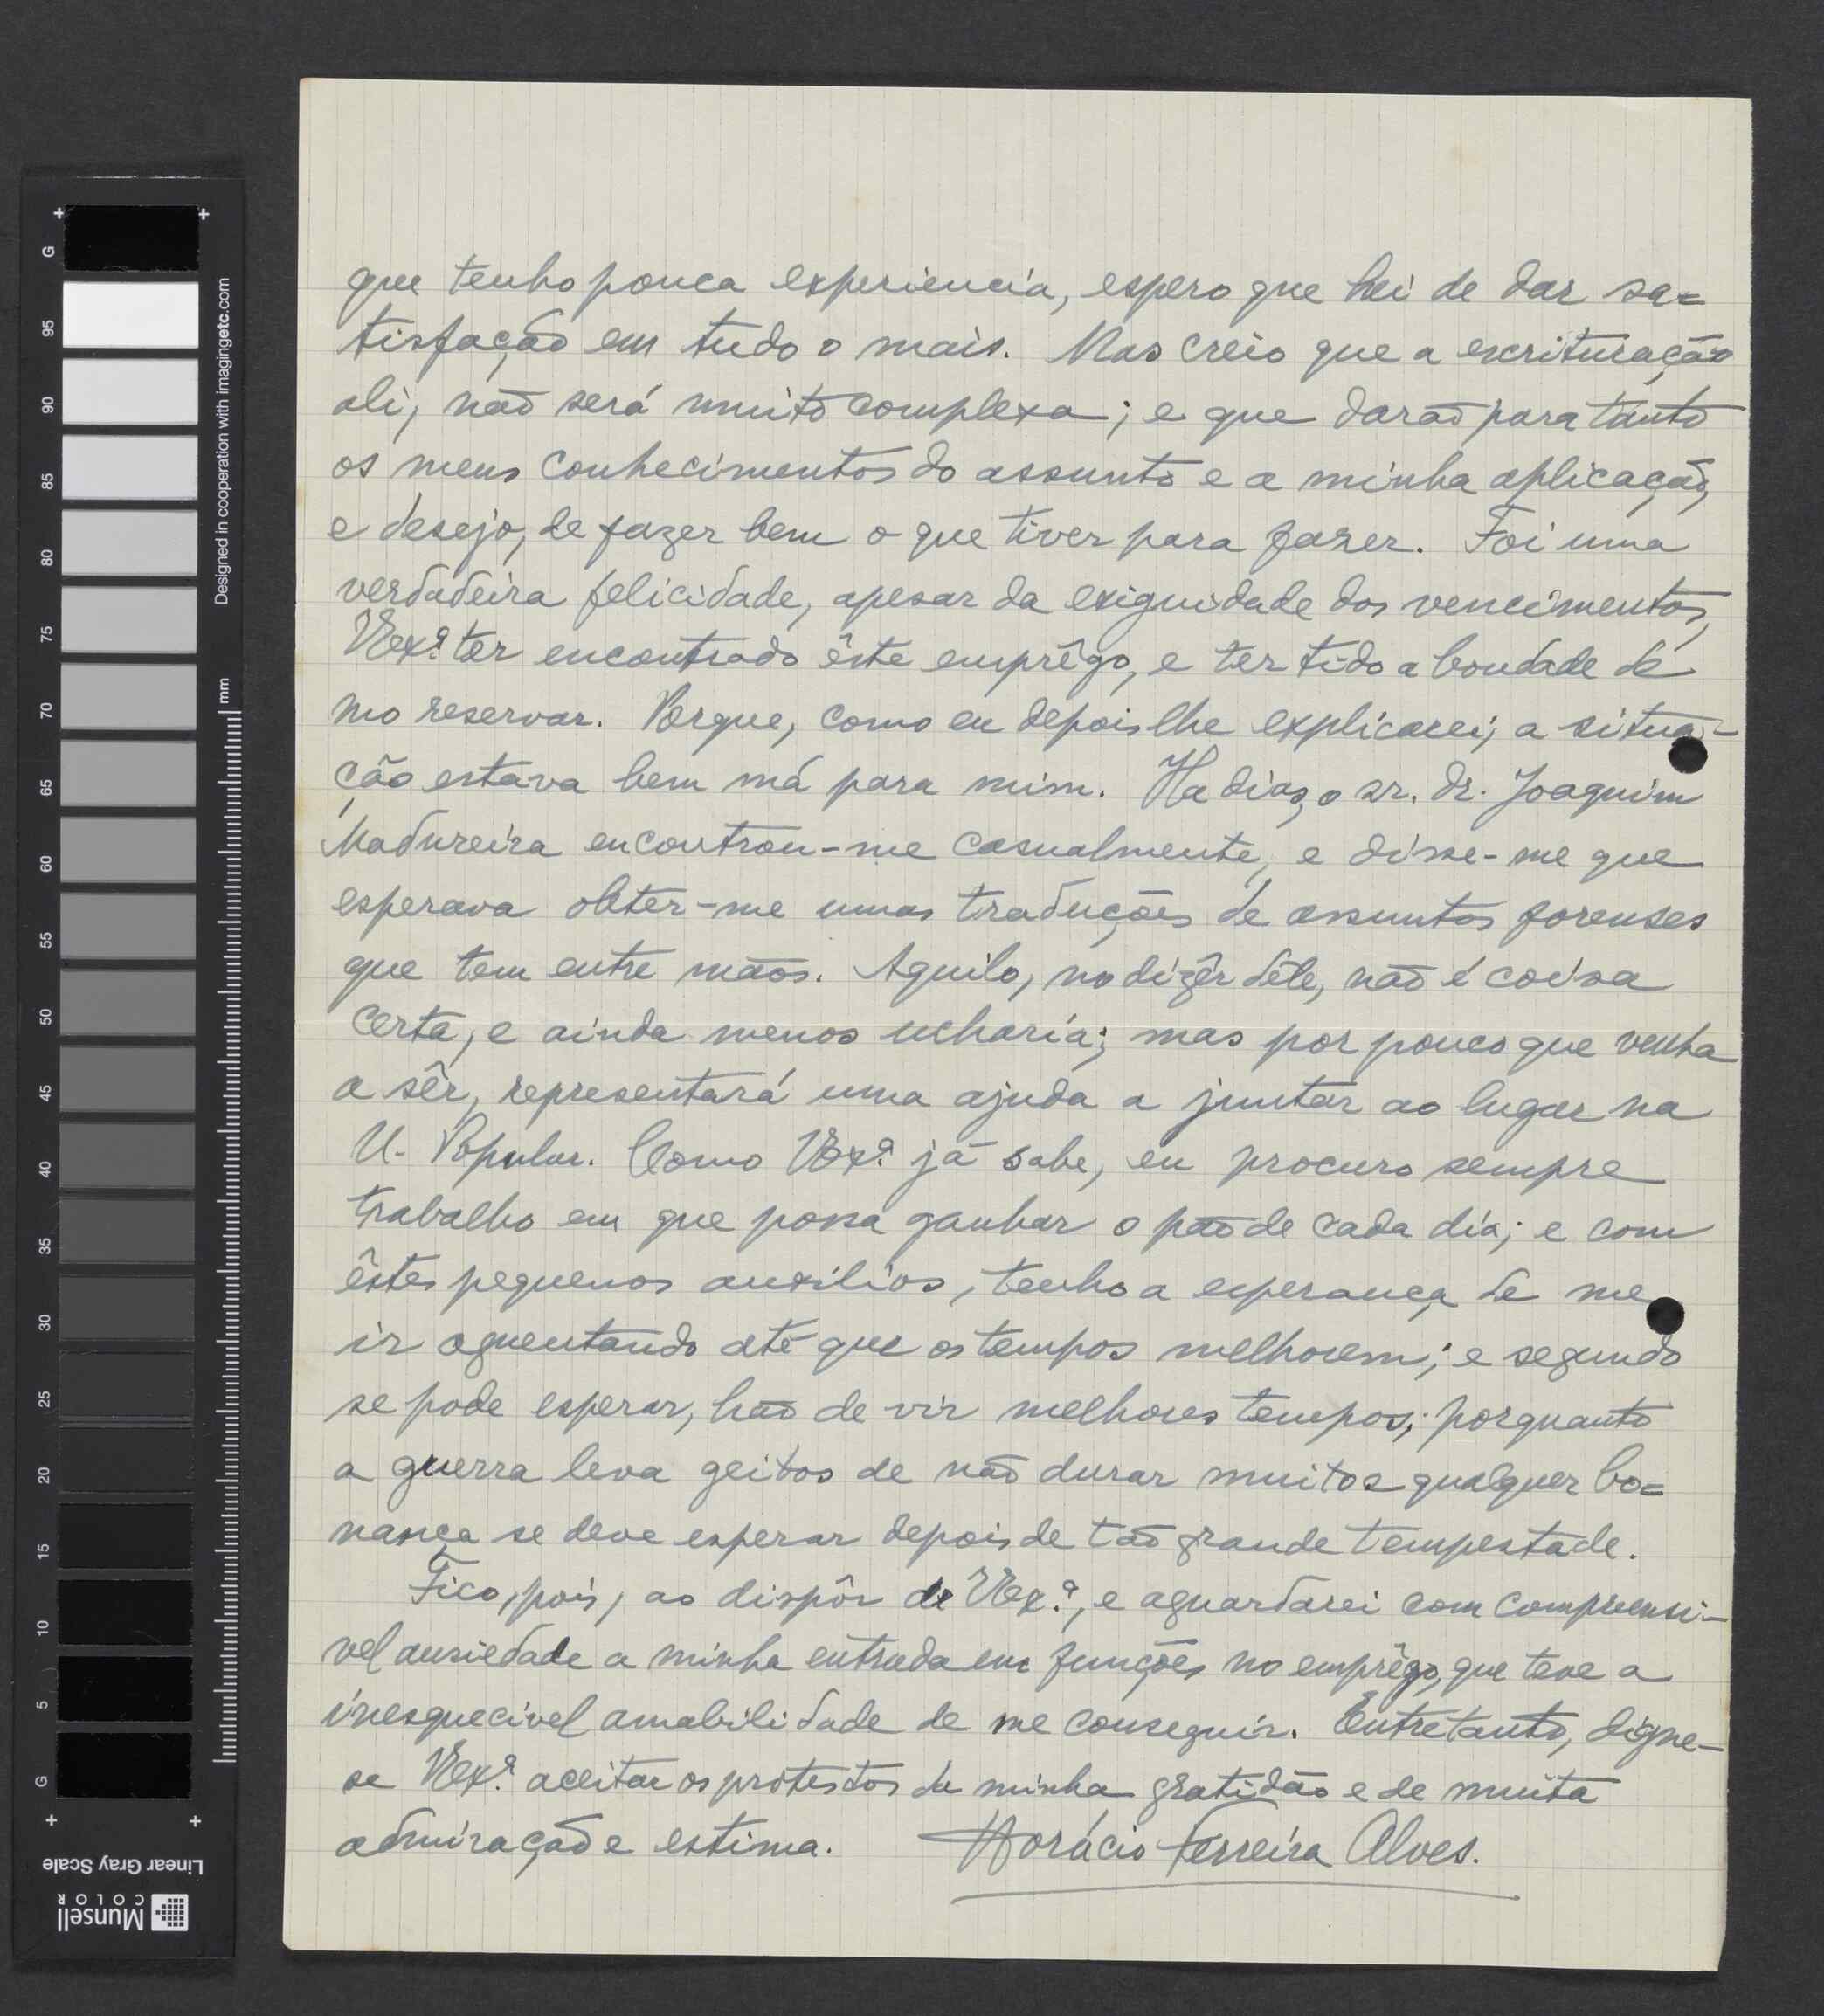 que tenho pouca experiencia, espero que hei de dar sa=
tisfação em tudo o mais. Mas creio que a escrituração
ali, não será muito complexa; e que darão para tanto
os meus conhecimentos do assunto e a minha aplicação,
e desejo, de fazer bem o que tiver para fazer. Foi uma
verdadeira felicidade, apesar da exiguidade dos vencimentos,
VExª. ter encontrado êste emprêgo, e ter tido a bondade de
mo reservar. Porque, como eu depois lhe explicarei, a situa-
ção estava bem má para mim. Ha dias, o sr. dr. Joaquim
Madureira encontrou-me casualmente, e disse-me que
esperava obter-me umas traduções de assuntos forenses
que tem entre mãos. Aquilo, no dizêr dêle, não é coisa
certa, e ainda menos ucharía; mas por pouco que venha
a sêr, representará uma ajuda a juntar ao lugar na
U. Popular. Como VExª. já sabe, eu procuro sempre
trabalho em que possa ganhar o pão de cada día; e com
êstes pequenos auxilios, tenho a esperança de me
ir aguentando até que os tempos melhorem; e segundo
se pode esperar, hão de vir melhores tempos; porquanto
a guerra leva geitos de não durar muito e qualquer bo=
nança se deve esperar depois de tão grande tempestade.
Fico, pois, ao dispôr de VExª., e aguardarei com compreensi-
vel ansiedade a minha entrada em funções no emprêgo, que teve a
inesquecivel amabilidade de me conseguir. Entretanto, digne-
se VExª. aceitar os protestos da minha gratidão e de muita
admiração e estima. Horácio Ferreira Alves.
Designed in cooperation with imagingetc.com
mm
G
95
90
85
80
75
70
65
60
55
50
45
40
35
30
25
20
15
10
5
G
Linear Gray Scale
Munsell
COLOR